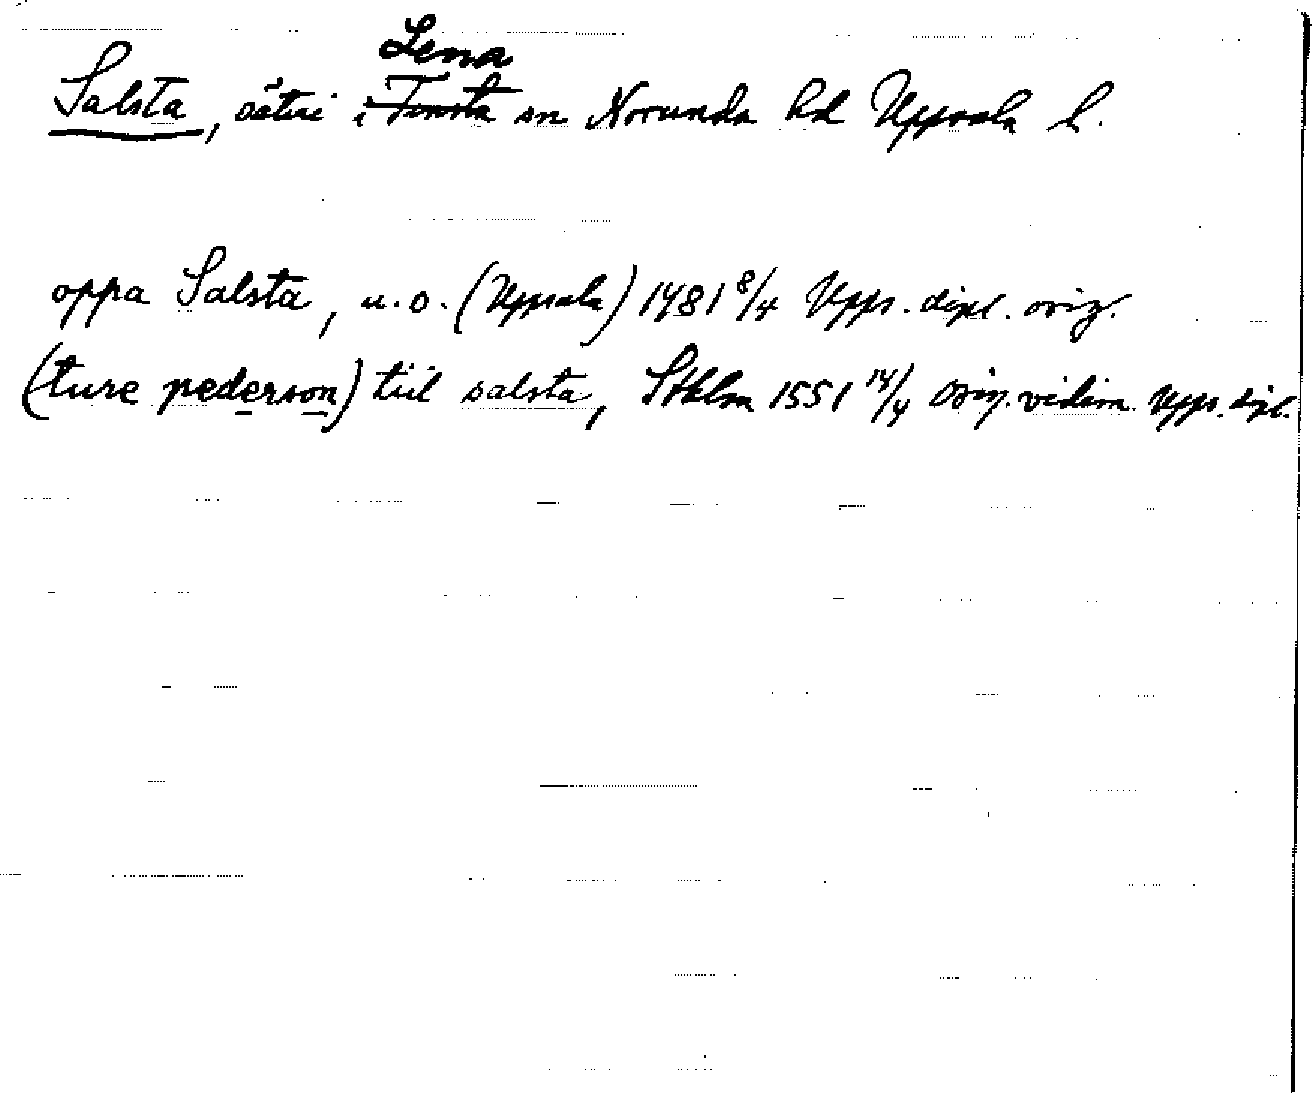 Lena
Salsta, säteri i Tensta sn Norunda hd Uppsala l.
oppa Salsta, u.o. (Uppsala) 1481 8/4 Upps. dipl. orig.
(ture pederson) tiil salsta, Sthlm 1551 14/4 Orig. vidim. Upps. dipl.